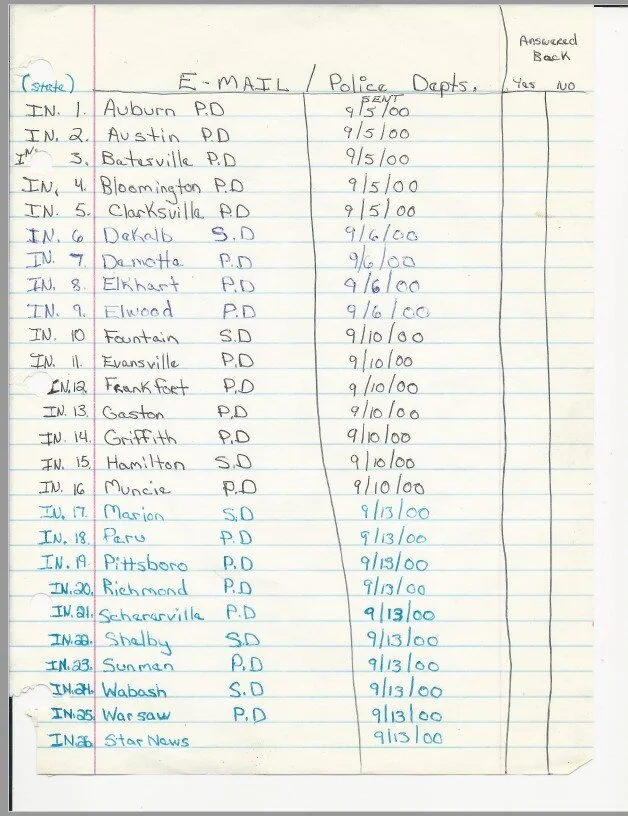 Answered
Back
(state) E-MAIL / Police Depts. Yes NO
SENT
IN. 1. Auburn P.D 9/5/00
IN. 2. Austin P.D 9/5/00
IN. 3. Batesville P.D 9/5/00
IN. 4. Bloomington P.D 9/5/00
IN. 5. Clarksville P.D 9/5/00
IN. 6 DeKalb S.D 9/6/00
IN. 7. Demotte P.D 9/6/00
IN. 8. Elkhart P.D 9/6/00
IN. 9. Elwood P.D 9/6/00
IN. 10 Fountain S.D 9/10/00
IN. 11. Evansville P.D 9/10/00
IN.12. Frankfort P.D 9/10/00
IN. 13. Gaston P.D 9/10/00
IN. 14. Griffith P.D 9/10/00
IN. 15. Hamilton S.D 9/10/00
IN. 16 Muncie P.D 9/10/00
IN. 17. Marion S.D 9/13/00
IN. 18. Peru P.D 9/13/00
IN. 19. Pittsboro P.D 9/13/00
IN.20. Richmond P.D 9/13/00
IN.21. Schererville P.D 9/13/00
IN.22. Shelby S.D 9/13/00
IN.23. Sunman P.D 9/13/00
IN.24. Wabash S.D 9/13/00
IN.25. Warsaw P.D 9/13/00
IN.26. Star News 9/13/00